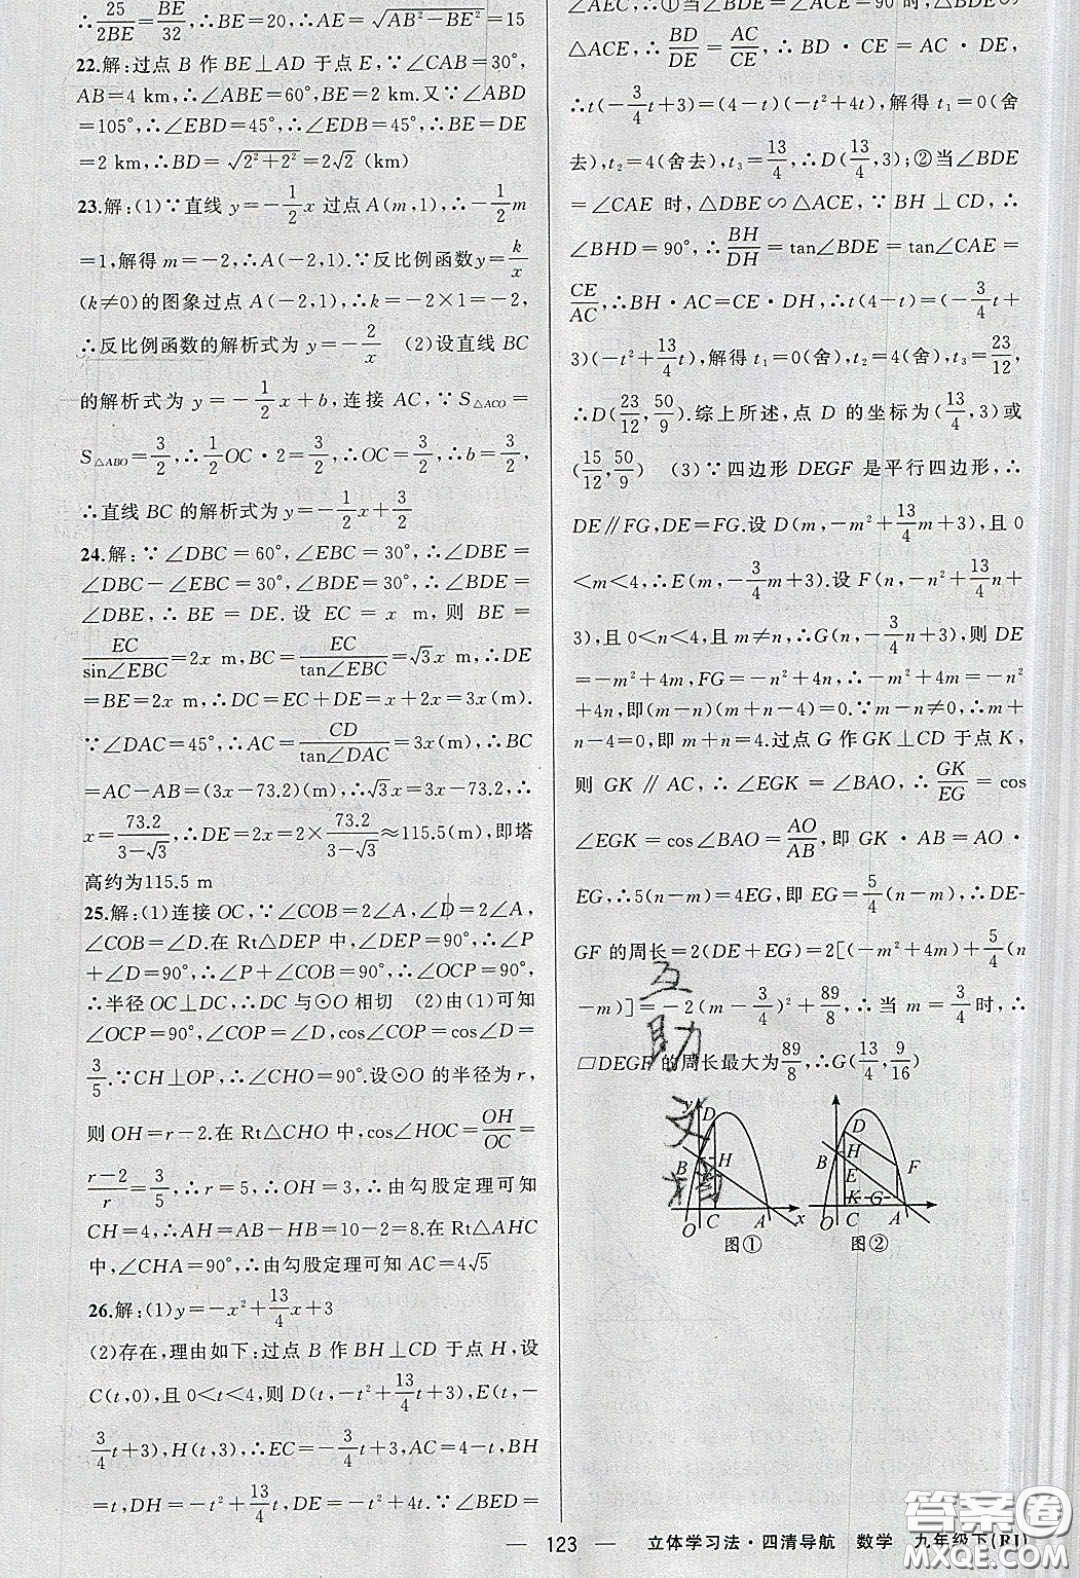 ∴25/2BE=BE/32,∴BE=20,∴AE=√(AB²-BE²)=15
22.解:过点 B 作 BE⊥AD 于点 E,∵∠CAB=30°,
AB=4 km,∴∠ABE=60°,BE=2 km.又∵∠ABD
=105°,∴∠EBD=45°,∴∠EDB=45°,∴BE=DE
=2 km,∴BD=√(2²+2²)=2√2 (km)
23.解:(1)∵直线 y=-1/2x 过点 A(m,1),∴-1/2m
=1,解得 m=-2,∴A(-2,1).∵反比例函数 y=k/x
(k≠0)的图象过点 A(-2,1),∴k=-2×1=-2,
∴反比例函数的解析式为 y=-2/x (2)设直线 BC
的解析式为 y=-1/2x+b,连接 AC,∵S△ACO=
S△ABO=3/2,∴1/2OC·2=3/2,∴OC=3/2,∴b=3/2,
∴直线 BC 的解析式为 y=-1/2x+3/2
24.解:∵∠DBC=60°,∠EBC=30°,∴∠DBE=
∠DBC-∠EBC=30°,∠BDE=30°,∴∠BDE=
∠DBE,∴BE=DE.设 EC=x m,则 BE=
EC/sin∠EBC=2x m,BC=EC/tan∠EBC=√3x m,∴DE
=BE=2x m,∴DC=EC+DE=x+2x=3x(m).
∵∠DAC=45°,∴AC=CD/tan∠DAC=3x(m),∴BC
=AC-AB=(3x-73.2)(m),∴√3x=3x-73.2,∴
x=73.2/(3-√3),∴DE=2x=2×73.2/(3-√3)≈115.5(m),即塔
高约为115.5 m
25.解:(1)连接 OC,∵∠COB=2∠A,∠D=2∠A,
∠COB=∠D.在 Rt△DEP 中,∠DEP=90°,∴∠P
+∠D=90°,∴∠P+∠COB=90°,∴∠OCP=90°,
∴半径 OC⊥DC,∴DC 与⊙O 相切 (2)由(1)可知
∠OCP=90°,∠COP=∠D,cos∠COP=cos∠D=
3/5.∵CH⊥OP,∴∠CHO=90°.设⊙O 的半径为 r,
则 OH=r-2.在 Rt△CHO 中,cos∠HOC=OH/OC=
(r-2)/r=3/5,∴r=5,∴OH=3,∴由勾股定理可知
CH=4,∴AH=AB-HB=10-2=8.在 Rt△AHC
中,∠CHA=90°,∴由勾股定理可知 AC=4√5
26.解:(1)y=-x²+13/4x+3
(2)存在,理由如下:过点 B 作 BH⊥CD 于点 H,设
C(t,0),且 0<t<4,则 D(t,-t²+13/4t+3),E(t,-
3/4t+3),H(t,3),∴EC=-3/4t+3,AC=4-t,BH
=t,DH=-t²+13/4t,DE=-t²+4t.∵∠BED=
∠AEC,∴①当∠BDE=∠ACE=90°时,△BDE∽
△ACE,∴BD/DE=AC/CE,∴BD·CE=AC·DE,
∴t(-3/4t+3)=(4-t)(-t²+4t),解得 t₁=0(舍
去),t₂=4(舍去),t₃=13/4,∴D(13/4,3);②当∠BDE
=∠CAE 时,△DBE∽△ACE,∵BH⊥CD,∴
∠BHD=90°,∴BH/DH=tan∠BDE=tan∠CAE=
CE/AC,∴BH·AC=CE·DH,∴t(4-t)=(-3/4t+
3)(-t²+13/4t),解得 t₁=0(舍),t₂=4(舍),t₃=23/12,
∴D(23/12,50/9).综上所述,点 D 的坐标为(13/4,3)或
(15/12,50/9) (3)∵四边形 DEGF 是平行四边形,∴
DE∥FG,DE=FG.设 D(m,-m²+13/4m+3),且 0
<m<4,∴E(m,-3/4m+3).设 F(n,-n²+13/4n+
3),且 0<n<4,且 m≠n,∴G(n,-3/4n+3),则 DE
=-m²+4m,FG=-n²+4n,∴-m²+4m=-n²
+4n,即(m-n)(m+n-4)=0.∵m-n≠0,∴m+
n-4=0,即 m+n=4.过点 G 作 GK⊥CD 于点 K,
则 GK∥AC,∴∠EGK=∠BAO,∴GK/EG=cos
∠EGK=cos∠BAO=AO/AB,即 GK·AB=AO·
EG,∴5(n-m)=4EG,即 EG=5/4(n-m),∴▱DE-
GF 的周长=2(DE+EG)=2[(-m²+4m)+5/4(n
-m)]=-2(m-3/4)²+89/8,∴当 m=3/4时,∴
▱DEGF 的周长最大为89/8,∴G(13/4,9/16)
互
助
文
精
y D B H E O C A x
图①
D B H F E K G O C A
图②
123 立体学习法·四清导航 数学 九年级下(RJ)
答案圈
MXQE.COM